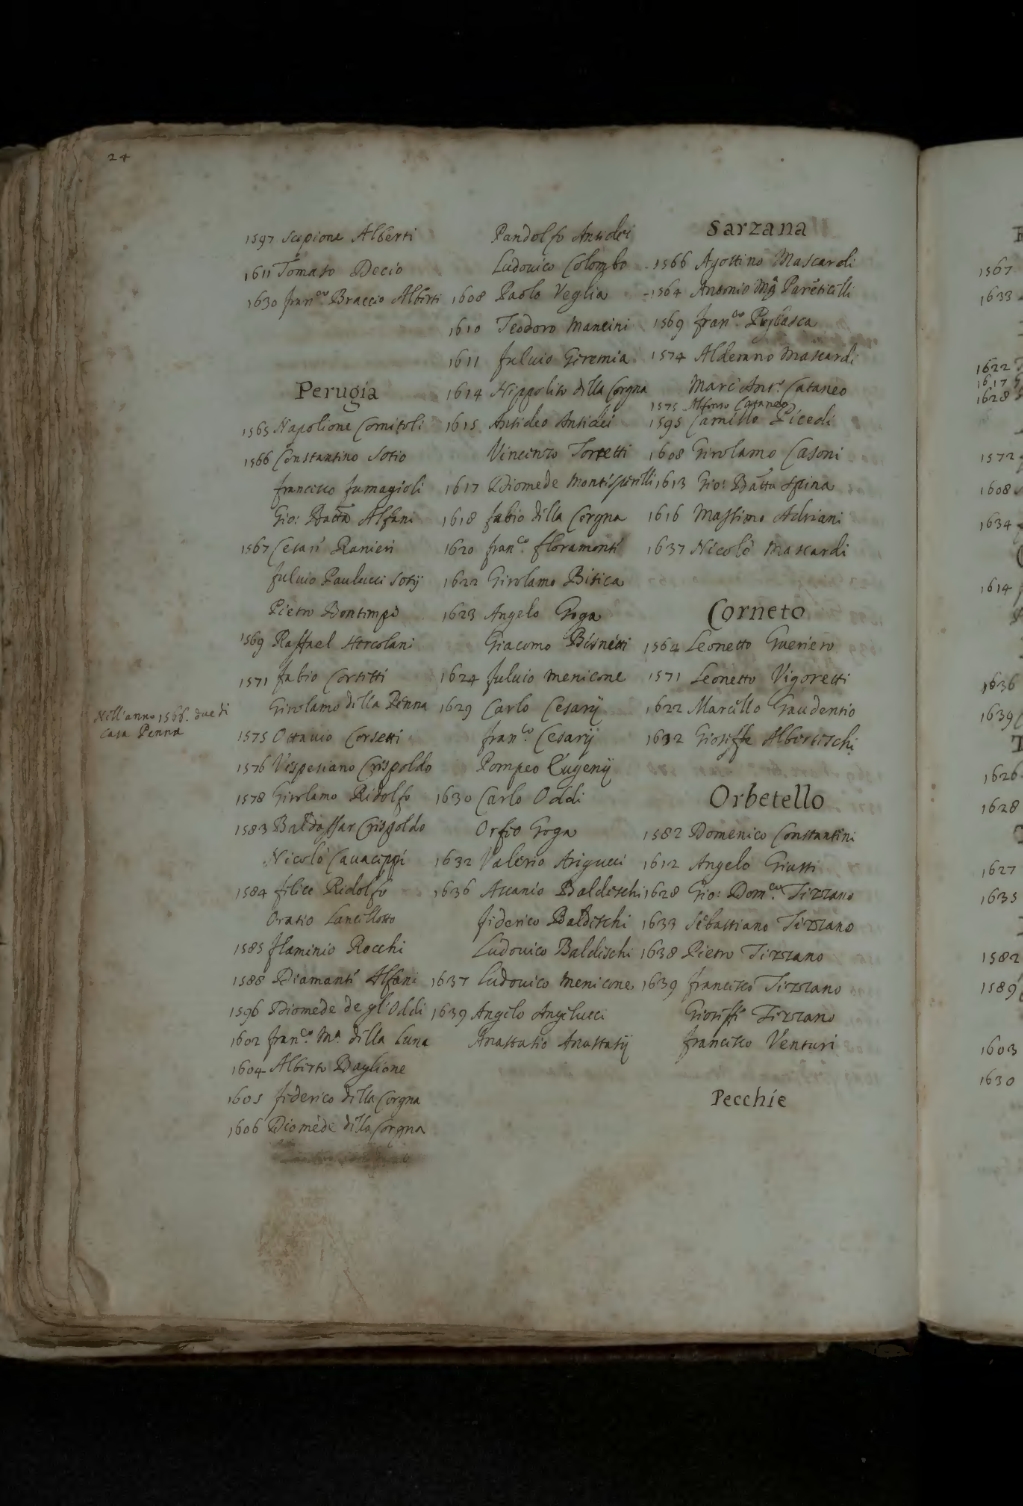 24
1597 Scipione Alberti
1611 Tomaso Decio
1630 fran.co Braccio Alberti
Perugia
1565 Napolione Comitoli
1566 Constantino Sotio
francesco fumagioli
Gio: Batta Alfani
1567 Cesari Ranieri
fulvio Paulucci Sotij
Pietro Bontempo
1569 Raffael Hercolani
1571 fabio Corsetti
Girolamo della Penna
Nell'anno 1566. due di
casa Penna
1575 Ottavio Corsetti
1576 Vespesiano Crispoldo
1578 Girolamo Ridolfo
1583 Baldassar Crispoldo
Nicolò Cavaceppi
1584 felice Ridolfo
Oratio Lancillotto
1585 flaminio Rocchi
1588 Diamante Alfani
1596 Diomede de gl'Oddi
1602 fran.co M.a della Luna
1604 Alberto Baglione
1605 federico della Corgna
1606 Diomede della Corgna
Pandolfo Antidei
Ludovico Colombo
1608 Paolo Veglia
1610 Teodoro Mancini
1611 fulvio Giremia
1614 Hippolito della Corgna
1615 Antideo Antidei
Vincenzo Torretti
1617 Diomede Montesperelli
1618 fabio della Corgna
1620 fran.co floramonti
1622 Girolamo Bitica
1623 Angelo Goga
Giacomo
1624 fulvio Menicone
1629 Carlo Cesarij
fran.co Cesarij
Pompeo Eugenij
1630 Carlo Oddi
Orfeo Goga
1632 Valerio Arigucci
1636 Ascanio Baldeschi
federico Baldeschi
Ludovico Baldeschi
1637 Ludovico Menicone
1639 Angelo Angelucci
Anastatio Anastatij
Sarzana
1566 Agostino Mascardi
1564 Antonio M.a Parenticelli
1569 fran.co
1574 Alderano Mascardi
Marc'Ant.o Cataneo
1575 Alfonso Cataneo
1595 Camillo Picedi
1608 Girolamo Casoni
1613 Gio: Batta Spina
1616 Massimo Adriani
1637 Nicolò Mascardi
Corneto
1564 Leonetto Gueriero
1571 Leonetto Vigoretti
1622 Marcello Gaudentio
1632 Gioseffe
Orbetello
1582 Domenico Constantini
1612 Angelo Giusti
1628 Gio: Dom.co Tizzano
1633 Sebastiano Tizzano
1638 Pietro Tizzano
1639 francesco Tizzano
Gioseffo Tizzano
francesco Venturi
Pecchie
1567
1633
1622
1617
1628
1572
1608
1634
1614
1636
1639
1626
1628
1627
1635
1582
1589
1603
1630